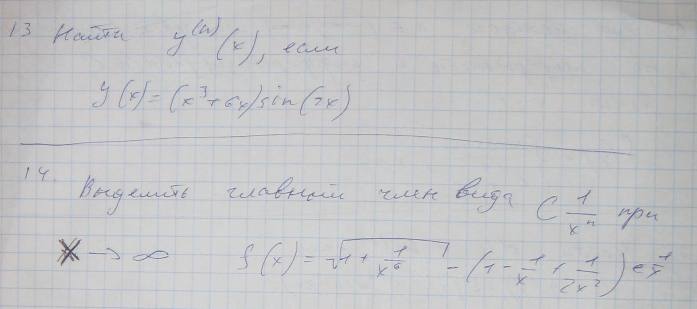 13 Найти y^(n)(x), если
y(x)=(x³+6x)sin(2x)
14. Выделить главный член вида C 1/xⁿ при
x→∞ f(x)=√(1+1/x⁶) - (1-1/x+1/2x²)e^(1/x)